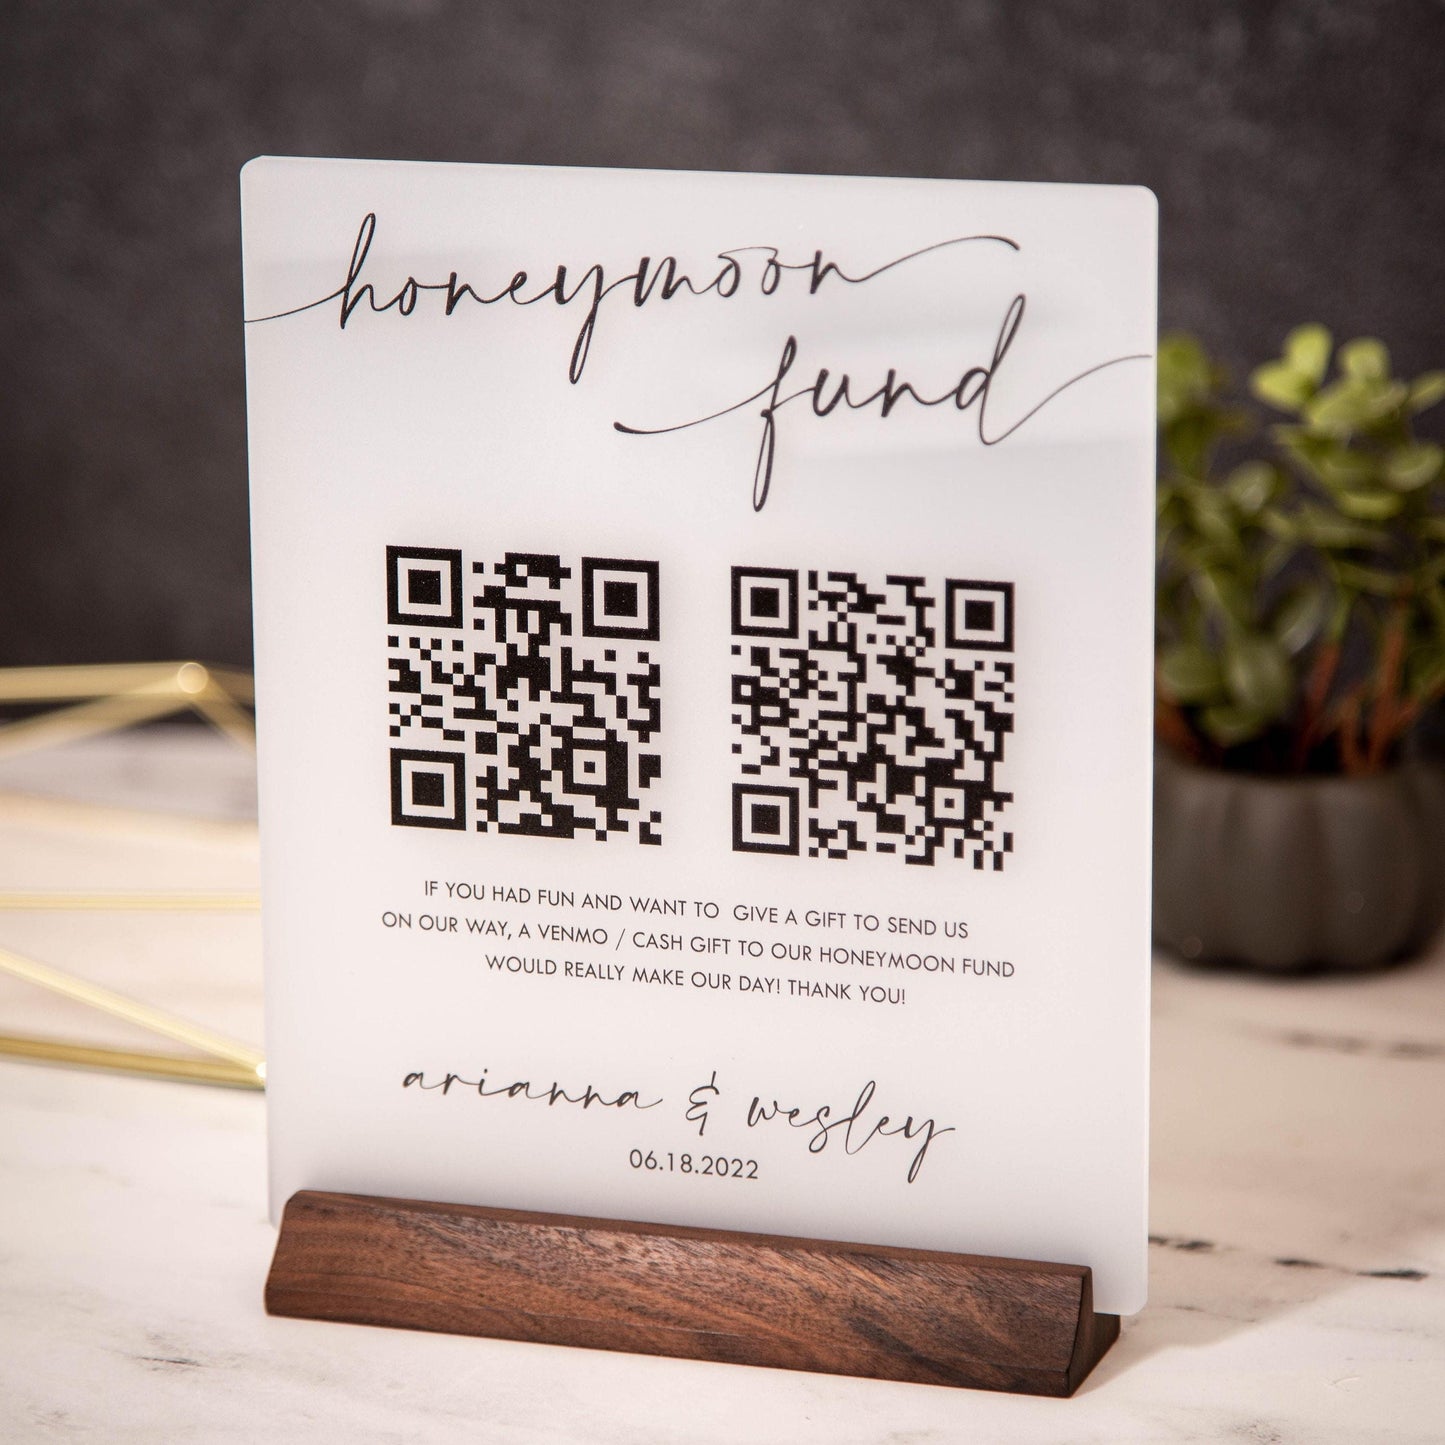 honeymoon
fund
IF YOU HAD FUN AND WANT TO GIVE A GIFT TO SEND US
ON OUR WAY, A VENMO / CASH GIFT TO OUR HONEYMOON FUND
WOULD REALLY MAKE OUR DAY! THANK YOU!
arianna & wesley
06.18.2022